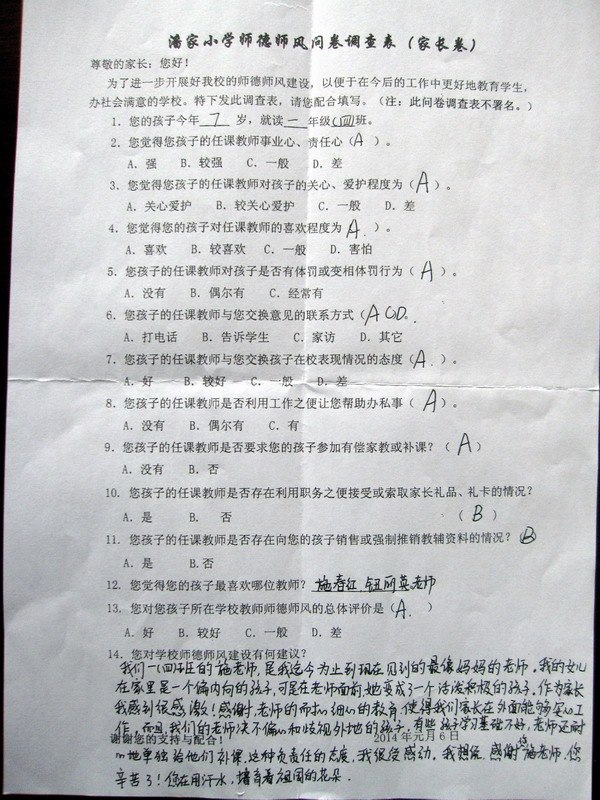 潘家小学师德师风问卷调查表（家长卷）
尊敬的家长：您好！
为了进一步开展好我校的师德师风建设，以便于在今后的工作中更好地教育学生，
办社会满意的学校。特下发此调查表，请您配合填写。（注：此问卷调查表不署名。）
1. 您的孩子今年 7 岁，就读一年级(四)班。
2. 您觉得您孩子的任课教师事业心、责任心（A）。
A. 强 B. 较强 C. 一般 D. 差
3. 您觉得您孩子的任课教师对孩子的关心、爱护程度为（A）。
A. 关心爱护 B. 较关心爱护 C. 一般 D. 差
4. 您觉得您的孩子对任课教师的喜欢程度为（A.）。
A. 喜欢 B. 较喜欢 C. 一般 D. 害怕
5. 您孩子的任课教师对孩子是否有体罚或变相体罚行为（A）。
A. 没有 B. 偶尔有 C. 经常有
6. 您孩子的任课教师与您交换意见的联系方式（A C D.
A. 打电话 B. 告诉学生 C. 家访 D. 其它
7. 您孩子的任课教师与您交换孩子在校表现情况的态度（A.）。
A. 好 B. 较好 C. 一般 D. 差
8. 您孩子的任课教师是否利用工作之便让您帮助办私事（A）。
A. 没有 B. 偶尔 C. 有
9. 您孩子的任课教师是否要求您的孩子参加有偿家教或补课？（A）
A. 没有 B. 否
10. 您孩子的任课教师是否存在利用职务之便接受或索取家长礼品、礼卡的情况？
A. 是 B. 否 （B）
11. 您孩子的任课教师是否存在向您的孩子销售或强制推销教辅资料的情况？（B）
A. 是 B.否
12. 您觉得您的孩子最喜欢哪位教师？ 施春红，钮丽英老师
13. 您对您孩子所在学校教师师德师风的总体评价是（A.）
A. 好 B. 较好 C. 一般 D. 差
14. 您对学校师德师风建设有何建议？
我们一(四)班的施老师，是我迄今为止到现在见到的最像妈妈的老师。我的女儿
在家里是一个偏内向的孩子，可是在老师面前她变成了一个活泼积极的孩子，作为家长
我感到很感激！感谢，老师的而细心的教育，使得我们家长在外面能够安心工
作，而且，我们的老师决不偏心和歧视外地的孩子，有些孩子学习基础不好，老师还耐
心地单独给他们补课，这种负责任的态度，我很受感动，我想说，感谢您施老师，您
谢谢您的支持与配合！ 2014年元月6日
辛苦了！您在用汗水，培育着祖国的花朵.